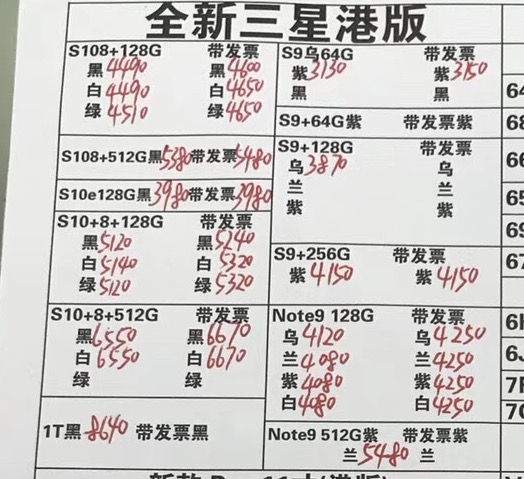 全新三星港版
S108+128G 带发票
黑4490 黑4600
白4490 白4650
绿4510 绿4650
S108+512G黑5380带发票5480
S10e128G黑3980带发票3980
S10+8+128G 带发票
黑5120 黑5240
白5140 白5320
绿5120 绿5320
S10+8+512G 带发票
黑6550 黑6670
白6550 白6670
绿 绿
1T黑8640 带发票黑
S9乌64G 带发票
紫3130 紫3150
黑 黑
S9+64G紫 带发票紫
S9+128G 带发票
乌3870 乌
兰 兰
紫 紫
S9+256G 带发票
紫4150 紫4150
Note9 128G 带发票
乌4120 乌4250
兰4080 兰4250
紫4080 紫4250
白4080 白4250
Note9 512G紫 带发票紫
兰5480 兰
64
68
66
65
69
67
6
6
7
7